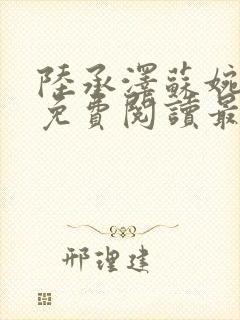 陸承澤蘇婉
免費閱讀最
邢理建